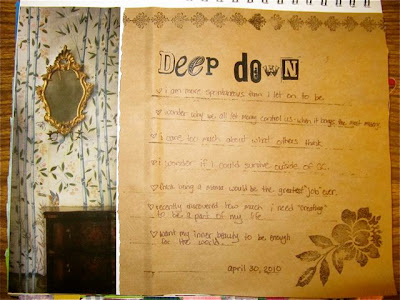 Deep down
i am more spontaneous than i let on to be.
wonder why we all let money control us when it
i care too much about what others think.
i wonder if I could survive outside of
think being a mama would be the greatest "job" ever.
recently uncovered how much i need "creating"
to be a part of my life.
want my inner beauty to be enough
for the world.
april 30, 2010